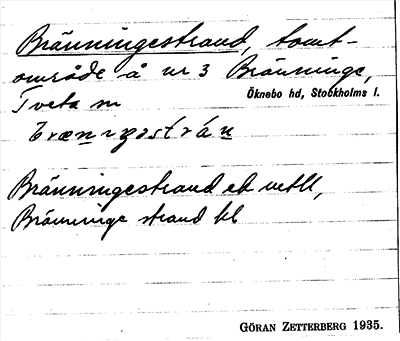 Bränningestrand, tomt-
område å nr 3 Bränninge,
Tveta sn
Öknebo hd, Stockholms l.
Bränningestrand ek
Bränninge strand bl
GÖRAN ZETTERBERG 1935.